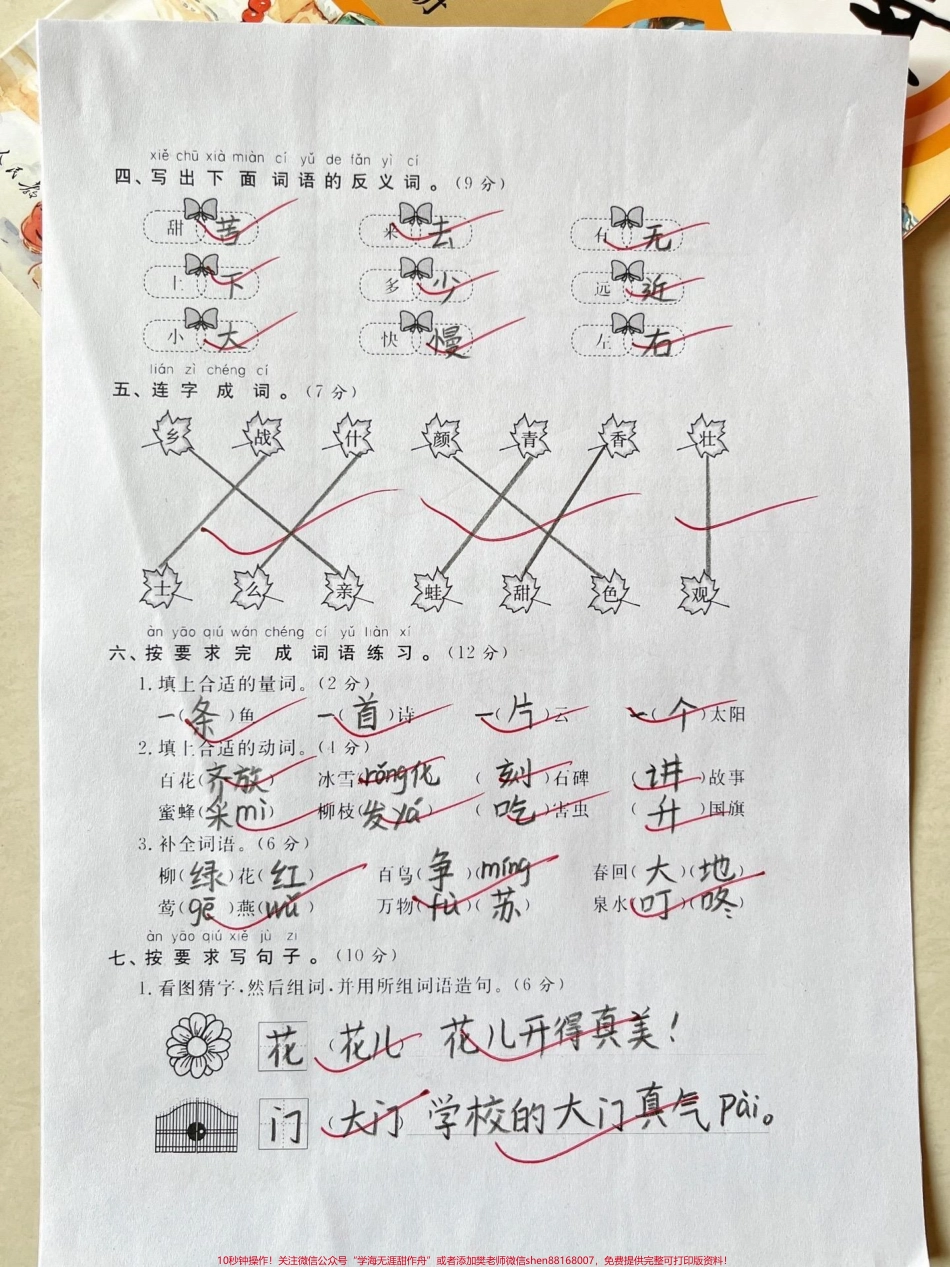 xiě chū xià miàn cí yǔ de fǎn yì cí
四、写出下面词语的反义词。(9分)
甜 苦 来 去 有 无
上 下 多 少 远 近
小 大 快 慢 左 右
lián zì chéng cí
五、连字成词。(7分)
乡 战 什 颜 青 香 壮
士 么 亲 蛙 甜 色 观
àn yāo qiú wán chéng cí yǔ liàn xí
六、按要求完成词语练习。(12分)
1.填上合适的量词。(2分)
一(条)鱼 一(首)诗 一(片)云 一(个)太阳
2.填上合适的动词。(4分)
百花(齐放) 冰雪(róng化) (刻)石碑 (讲)故事
蜜蜂(采mì) 柳枝(发yá) (吃)害虫 (升)国旗
3.补全词语。(6分)
柳(绿)花(红) 百鸟(争)(míng) 春回(大)(地)
莺(gē)燕(wǔ) 万物(fù)(苏) 泉水(叮)(咚)
àn yāo qiú xiě jù zi
七、按要求写句子。(10分)
1.看图猜字,然后组词,并用所组词语造句。(6分)
花 (花儿) 花儿开得真美!
门 (大门) 学校的大门真气pài。
10秒钟操作!关注微信公众号“学海无涯甜作舟”或者添加樊老师微信shen88168007,免费提供完整可打印版资料!